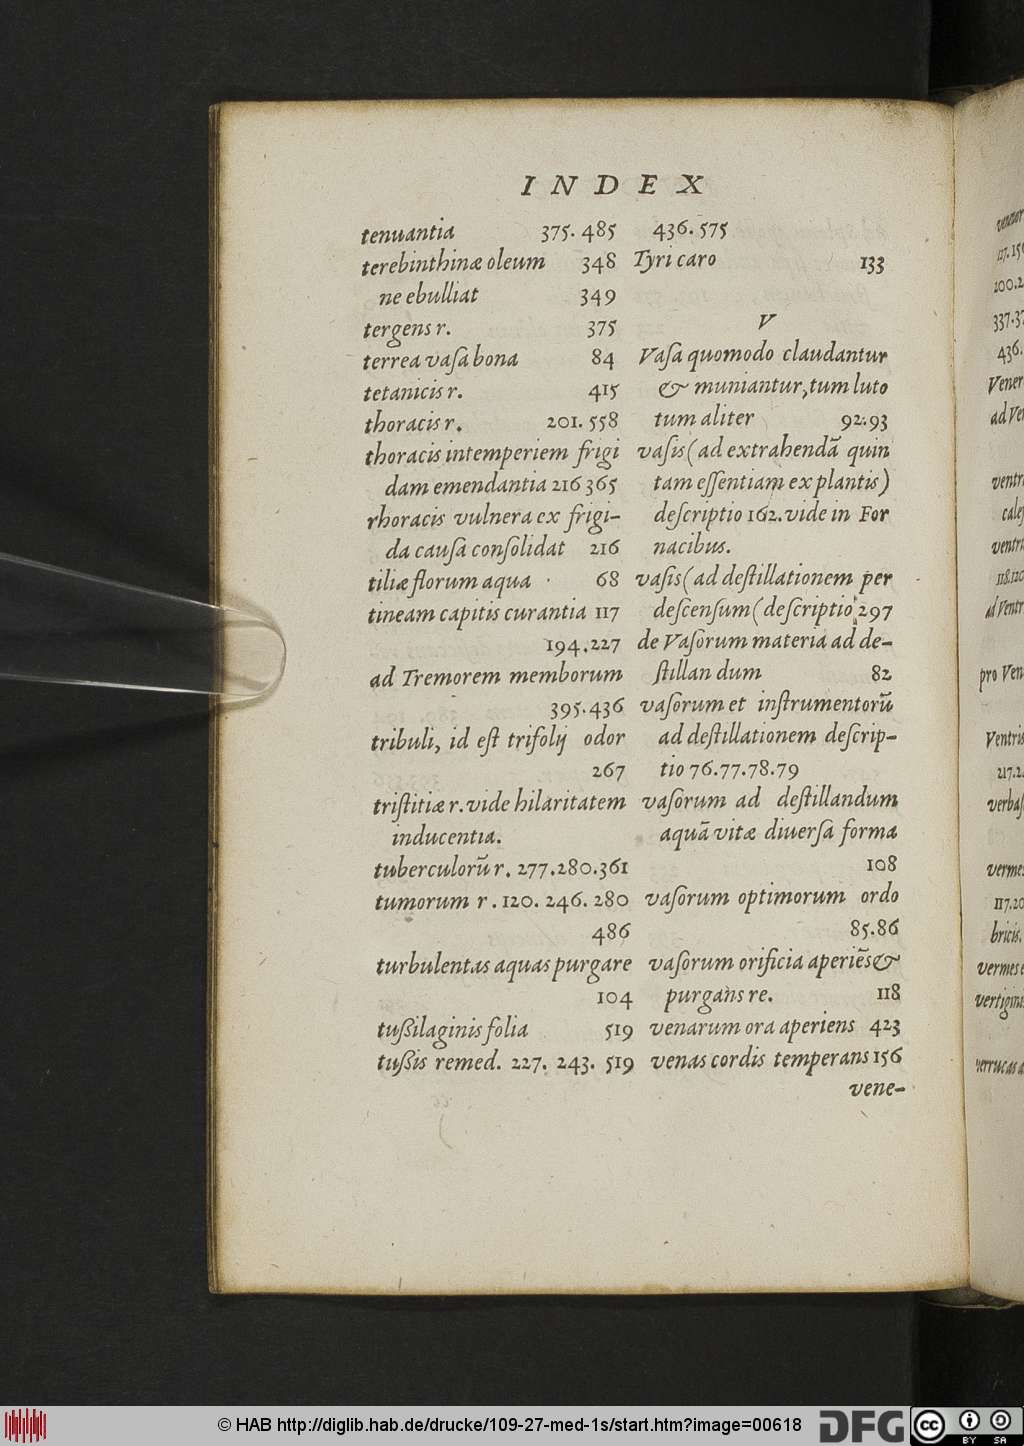 INDEX
tenuantia 375. 485
terebinthinæ oleum 348
ne ebulliat 349
tergens r. 375
terrea vaſa bona 84
tetanicis r. 415
thoracis r. 201. 558
thoracis intemperiem frigi
dam emendantia 216 365
rhoracis vulnera ex frigi-
da cauſa conſolidat 216
tiliæ florum aqua 68
tineam capitis curantia 117
194.227
ad Tremorem memborum
395.436
tribuli, id eſt trifolij odor
267
triſtitiæ r. vide hilaritatem
inducentia.
tuberculorũ r. 277.280.361
tumorum r. 120. 246. 280
486
turbulentas aquas purgare
104
tußilaginis folia 519
tußis remed. 227. 243. 519
436. 575
Tyri caro 133
V
Vaſa quomodo claudantur
& muniantur, tum luto
tum aliter 92.93
vaſis (ad extrahendã quin
tam eſſentiam ex plantis)
deſcriptio 162. vide in For
nacibus.
vaſis (ad deſtillationem per
deſcenſum (deſcriptio 297
de Vaſorum materia ad de-
ſtillan dum 82
vaſorum et inſtrumentorũ
ad deſtillationem deſcrip-
tio 76.77.78.79
vaſorum ad deſtillandum
aquã vitæ diuerſa forma
108
vaſorum optimorum ordo
85.86
vaſorum orificia aperiẽs &
purgans re. 118
venarum ora aperiens 423
venas cordis temperans 156
vene-
200.2
337.37
436.
Vener
ad Ve
ventr
ventr
118.120
ad Ventr
pro Ven
Ventris
217.2
verbaſ
vermes
117.20
bricis.
vermes e
vertigin
verrucas a
© HAB http://diglib.hab.de/drucke/109-27-med-1s/start.htm?image=00618
DFG
cc
BY SA